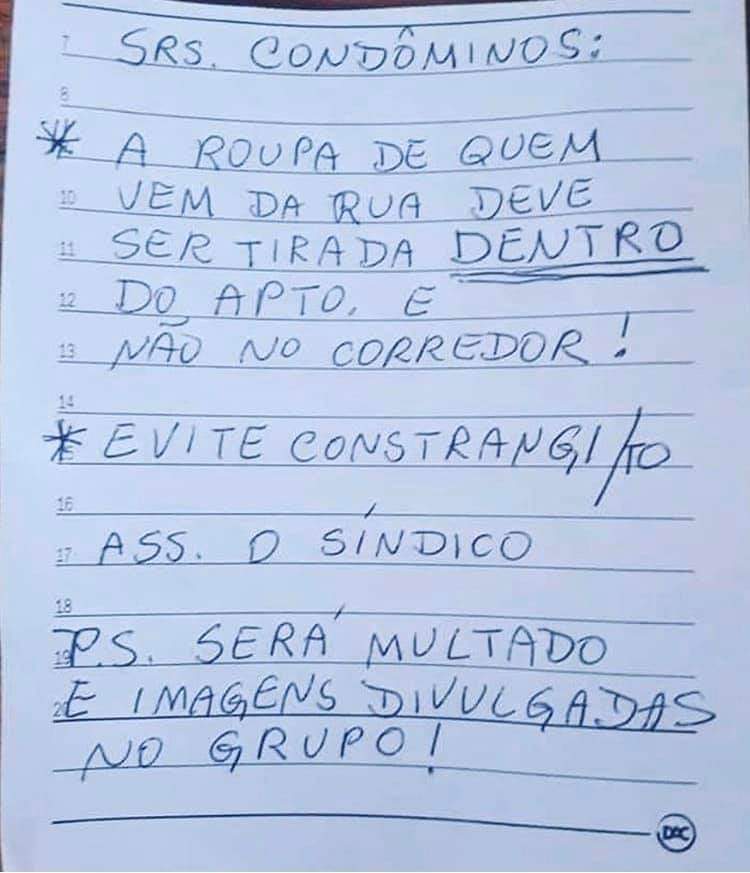 7 SRS. CONDÔMINOS:
8
* A ROUPA DE QUEM
10 VEM DA RUA DEVE
11 SER TIRADA DENTRO
12 DO APTO. E
13 NÃO NO CORREDOR!
14
* EVITE CONSTRANGI/TO
16
17 ASS. O SÍNDICO
18
19 P.S. SERÁ MULTADO
E IMAGENS DIVULGADAS
NO GRUPO!
DAC